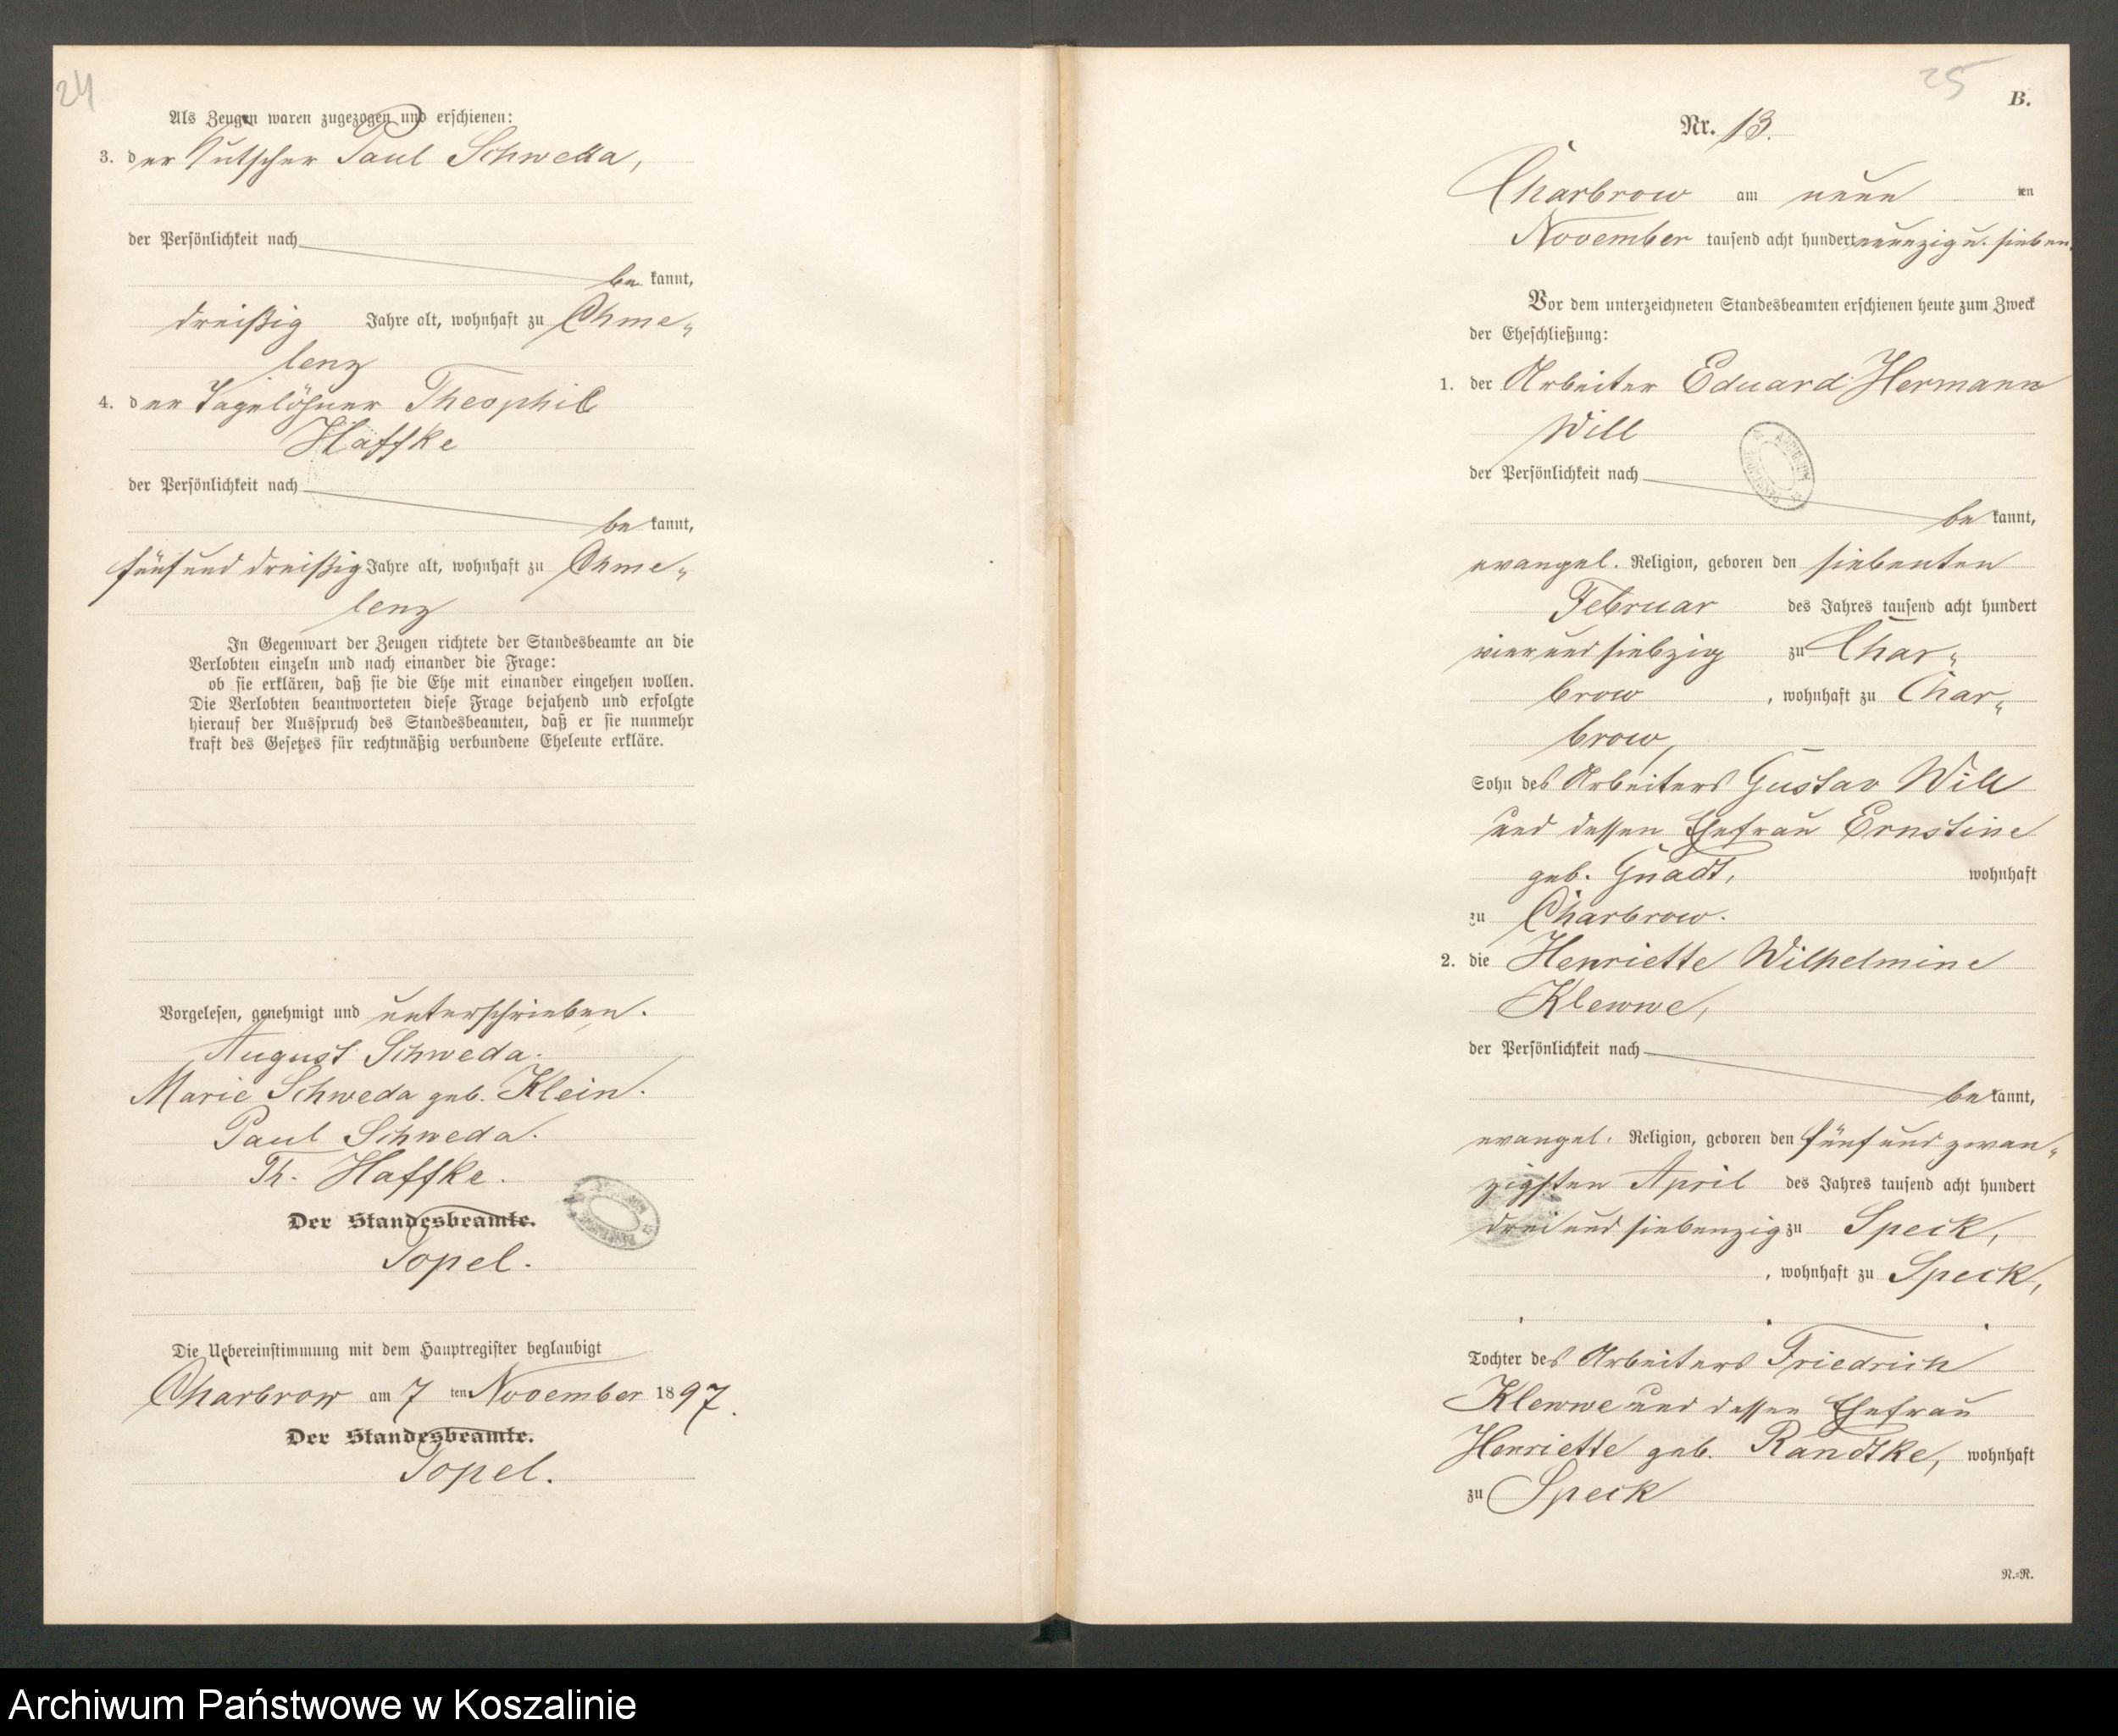 24
Als Zeugen waren zugezogen und erschienen:
3. der Kutscher Paul Schweda,
der Persönlichkeit nach
be kannt,
dreißig Jahre alt, wohnhaft zu Chme„
lenz
4. der Tagelöhner Theophil
Haffke
der Persönlichkeit nach
be kannt,
fünf und dreißig Jahre alt, wohnhaft zu Chme„
lenz
In Gegenwart der Zeugen richtete der Standesbeamte an die
Verlobten einzeln und nach einander die Frage:
ob sie erklären, daß sie die Ehe mit einander eingehen wollen.
Die Verlobten beantworteten diese Frage bejahend und erfolgte
hierauf der Ausspruch des Standesbeamten, daß er sie nunmehr
kraft des Gesetzes für rechtmäßig verbundene Eheleute erkläre.
Vorgelesen, genehmigt und unterschrieben.
August Schweda.
Marie Schweda geb. Klein.
Paul Schweda.
Th. Haffke.
Der Standesbeamte.
Topel.
Die Uebereinstimmung mit dem Hauptregister beglaubigt
Charbrow am 7 ten November 1897.
Der Standesbeamte.
Topel.
25
B.
Nr. 13.
Charbrow am neun ten
November tausend acht hundert neunzig u. sieben.
Vor dem unterzeichneten Standesbeamten erschienen heute zum Zweck
der Eheschließung:
1. der Arbeiter Eduard Hermann
Will
der Persönlichkeit nach
be kannt,
evangel. Religion, geboren den siebenten
Februar des Jahres tausend acht hundert
vier und siebzig zu Char„
brow, wohnhaft zu Char„
brow,
Sohn des Arbeiters Gustav Will
und dessen Ehefrau Ernstine
geb. Gnadt, wohnhaft
zu Charbrow.
2. die Henriette Wilhelmine
Klewwe,
der Persönlichkeit nach
be kannt,
evangel. Religion, geboren den fünf und zwan„
zigsten April des Jahres tausend acht hundert
drei und siebenzig zu Speck,
, wohnhaft zu Speck,
Tochter des Arbeiters Friedrich
Klewwe und dessen Ehefrau
Henriette geb. Randtke, wohnhaft
zu Speck
N.-R.
Archiwum Państwowe w Koszalinie